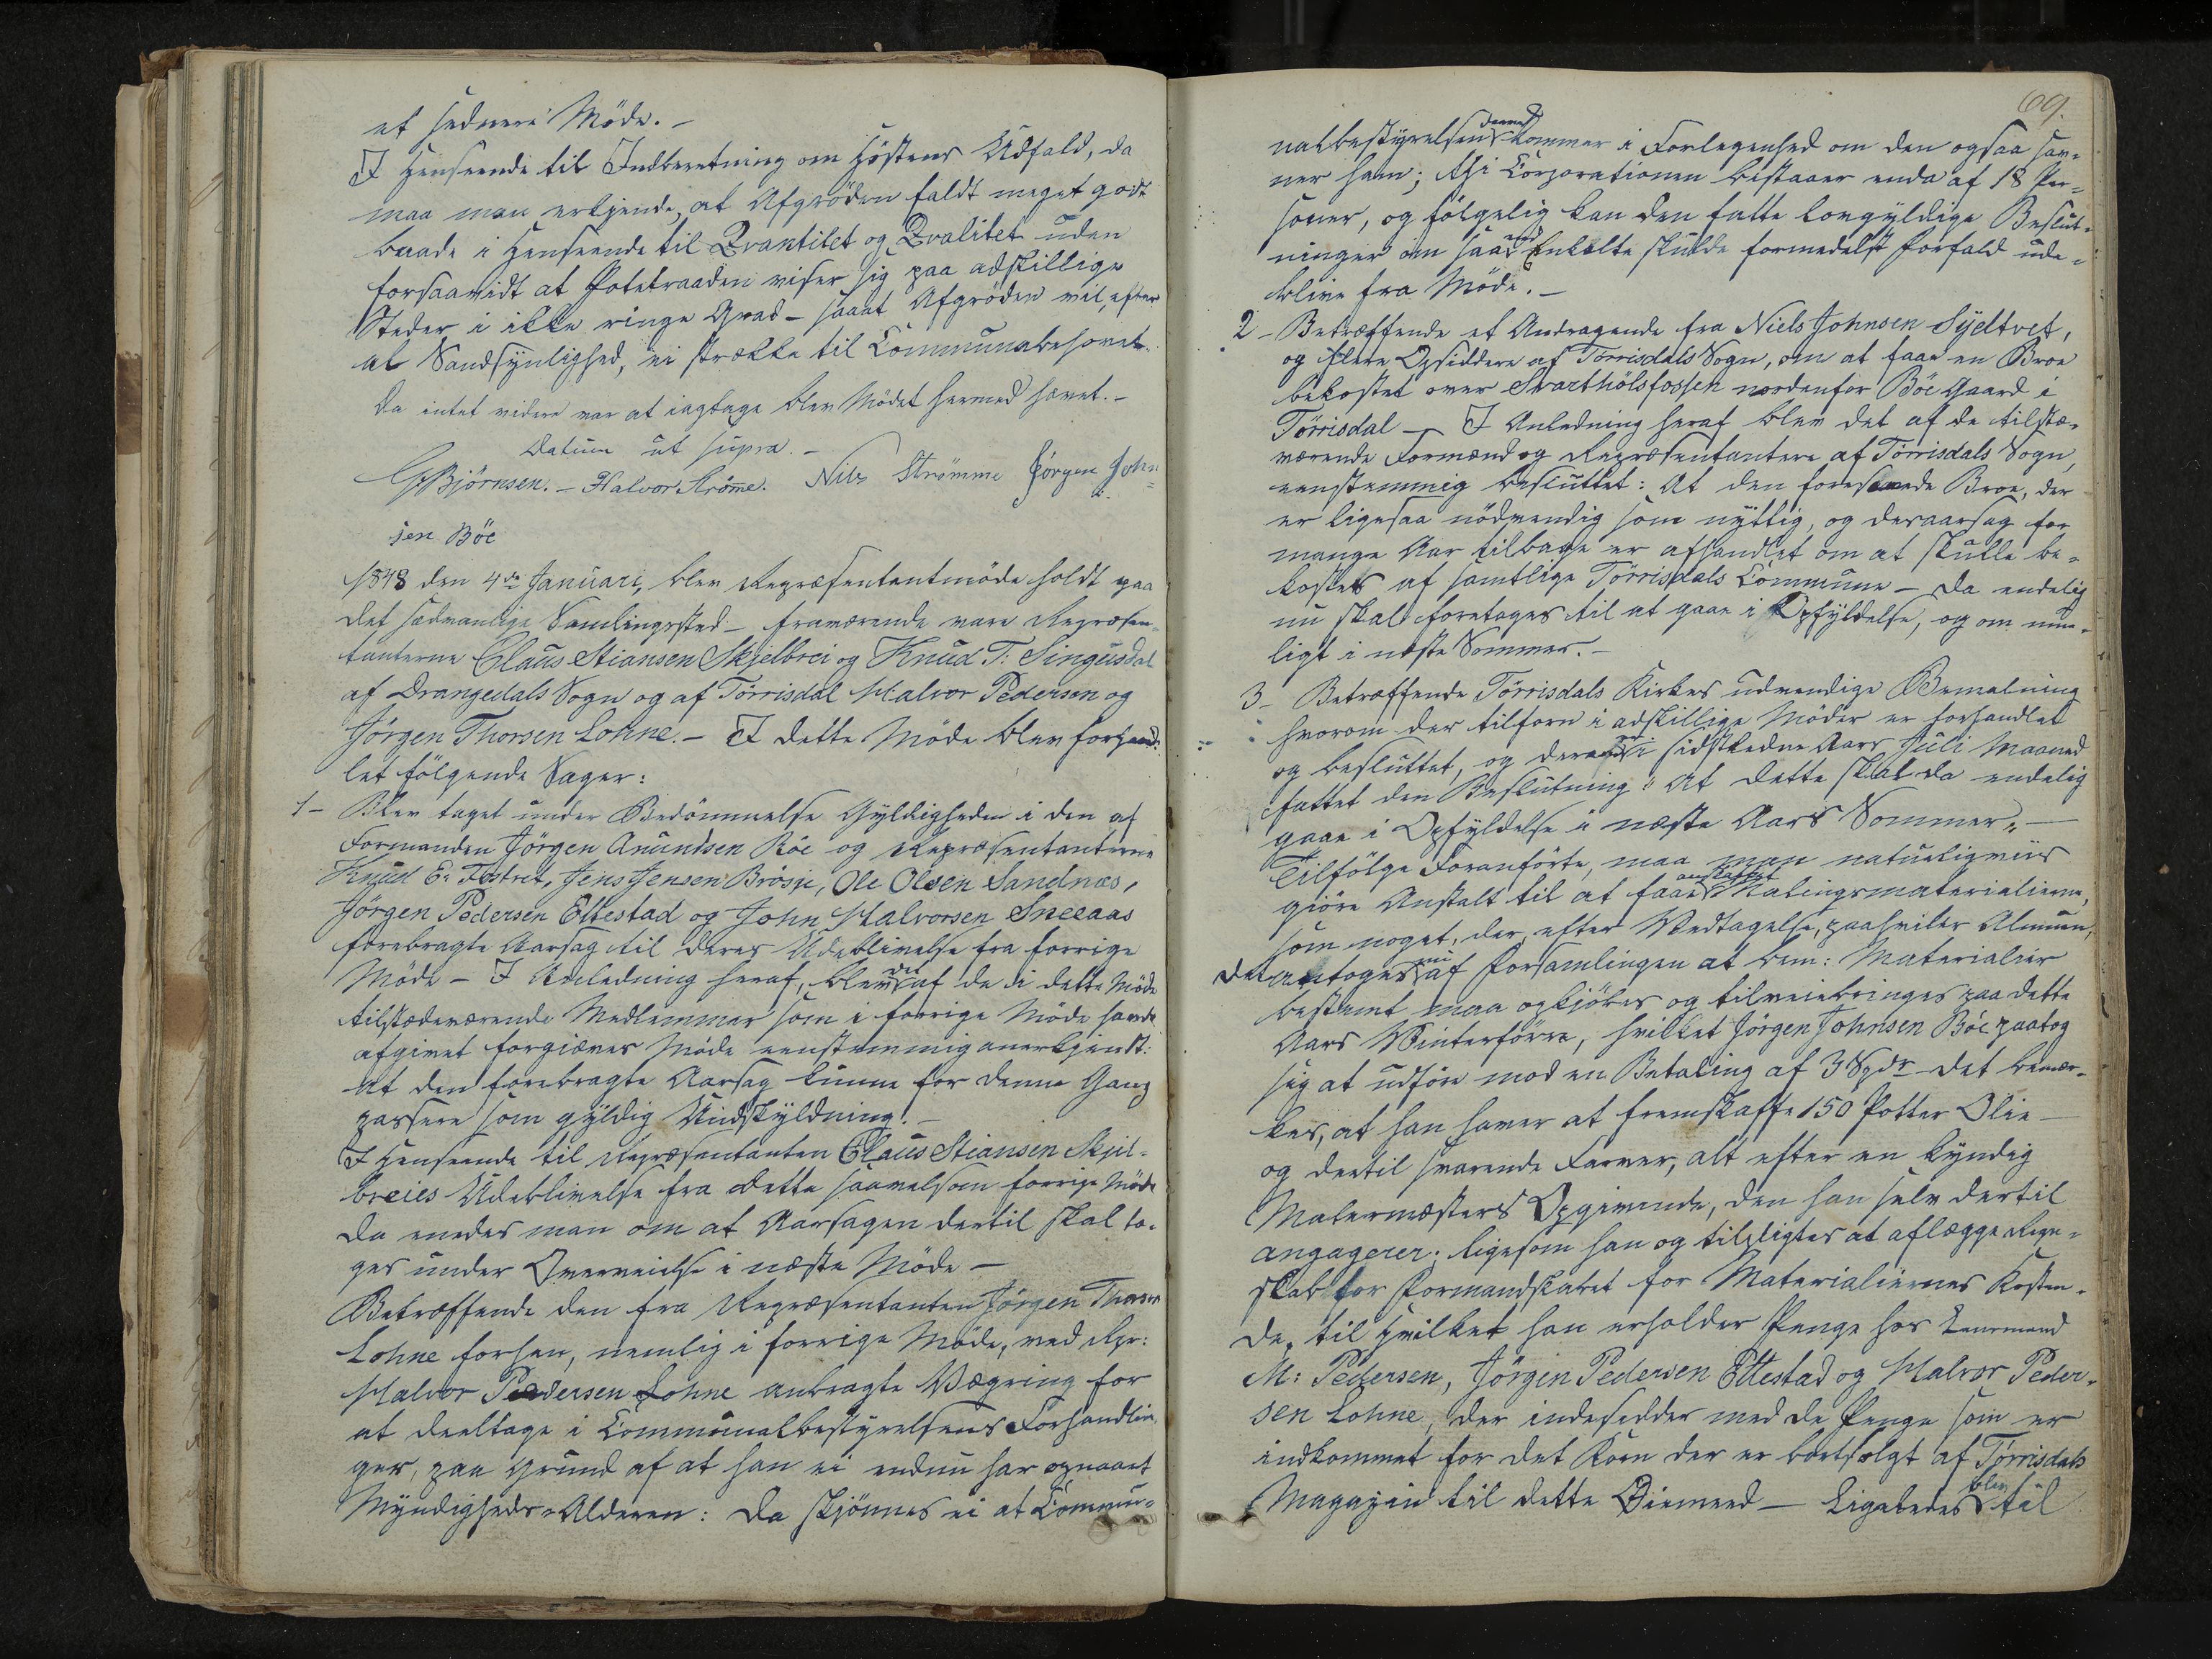 et sednere Möde. -
I Henseende til Indberetning om Höstens Udfald, da
maa man erkjende, at Afgröden faldt meget godt
baade i Henseende til Qvantitet og Qvalitet uden
forsaavidt at Potetraaden viser sig paa adskillige
Steder i ikke ringe Grad - saaat Afgröden vil, efter
al Sandsynlighed, ei strække til Communebehovet.
Da intet videre var at iagtage blev Mödet hermed hævet. -
Datum ut supra. -
G. Björnsen. - Halvor Ströme. Nils Strömme Jörgen John=
sen Böe
1848 den 4de Januari, blev Repræsentantmöde holdt paa
det sædvanlige Samlingssted - fraværende vare Repræsen=
tanterne Claus Stiansen Skjelbrei og Knud T: Singusdal
af Drangedals Sogn og af Törrisdal Halvor Pedersen og
Jörgen Thorsen Lohne. - I dette Möde blev forhand:
let fölgende Sager:
1- Blev taget under Bedömmelse Gyldigheden i den af
Formanden Jörgen Anundsen Böe og Repræsentanterne
Knud E. Tostvet, Jens Jensen Brösje, Ole Olsen Sandnæs,
Jörgen Pedersen Ettestad og John Halvorsen Sneeaas
forebragte Aarsag til deres Udeblivelse fra forrige
Möde - I Anledning heraf, blev det af de i dette Möde
tilstædeværende Medlemmer som i forrige Möde havde
afgivet forgiæves Möde eenstemmig anerkjendt:
at den forebragte Aarsag kunne for denne Gang
passere som gyldig Undskyldning. -
I Henseende til Repræsentanten Claus Stiansen Skjel=
breies Udeblivelse fra dette saavelsom forrige Möde
da enedes man om at Aarsagen dertil skal ta=
ges under Overveielse i næste Möde -
Betræffende den fra Repræsentanten Jörgen Thorsen
Lohne forhen, nemlig i forrige Möde, ved Repr:
Halvor Pedersen Lohne anbragte Vægring for
at deeltage i Communalbestyrelsens Forhandlin=
ger, paa Grund af at han ei endnu har opnaaet
Myndigheds-Alderen: Da skjönnes ei at Commu=
69.
nalbestyrelsen derved kommer i Forlegenhed om den ogsaa sav=
ner ham; thi Corporationen bestaaer enda af 18 Per=
soner, og fölgelig kan den fatte lovgyldige Beslut=
ninger om Enkelte skulde formedelst Forfald ude=
blive fra Möde. -
2 - Betræffende et Andragende fra Niels Johnsen Syeltvet,
og flere Opsiddere af Törrisdals Sogn, om at faae en Broe
bekostet over Svarthölsfossen nordenfor Böe Gaard i
Törrisdal - I Anledning heraf blev det af de tilstæ=
værende Formænd og Repræsentantere af Törrisdals Sogn,
eenstemmig besluttet: At den Broe, der
er ligesaa nödvendig som nyttig, og desaarsag for
mange Aar tilbage er afhandlet om at skulle be=
kostes af samtlige Törrisdals Commune - da endelig
nu skal foretages til at gaae i Opfyldelse, og om mu=
ligt i næste Sommer. -
3 - Betræffende Törrisdals Kirkes udvendige Bemalning
hvorom der tilforn i adskillige Möder er forhandlet
og besluttet, og i sidstledne Aars Juli Maaned
fattet den Beslutning: "At dette skal da endelig
gaae i Opfyldelse i næste Aars Sommer". -
Tilfölge Foranförte, maa man naturligviis
giöre Anstalt til at faae anskaffet Malingsmaterialierne,
som noget, der, efter Vedtagelse, paahviler Almuen,
det antoges nu af Forsamlingen at bem: Materialier
bestemt maa opkjöbes og tilveiebringes paa dette
Aars Vinterföre, hvilket Jörgen Johnsen Böe paatog
sig at udföre mod en Betaling af 3 Spdr det bemær=
kes, at han haver at fremskaffe 150 Potter Olie -
og dertil svarende Farver, alt efter en kyndig
Malermesters Opgivende, den han selv dertil
angagerer. ligesom han og tilpligtes at aflægge Regn=
skab for Formandskabet for Materialiernes Kosten=
de, til hvilket han erholder Penge hos Lensmand
M: Pedersen, Jörgen Pedersen Ettestad og Halvor Peder=
sen Lohne, der indesidder med de Penge som er
indkommet for det Korn der er bortsolgt af Törrisdals
Magazin til dette Öiemeed - Ligeledes blev til